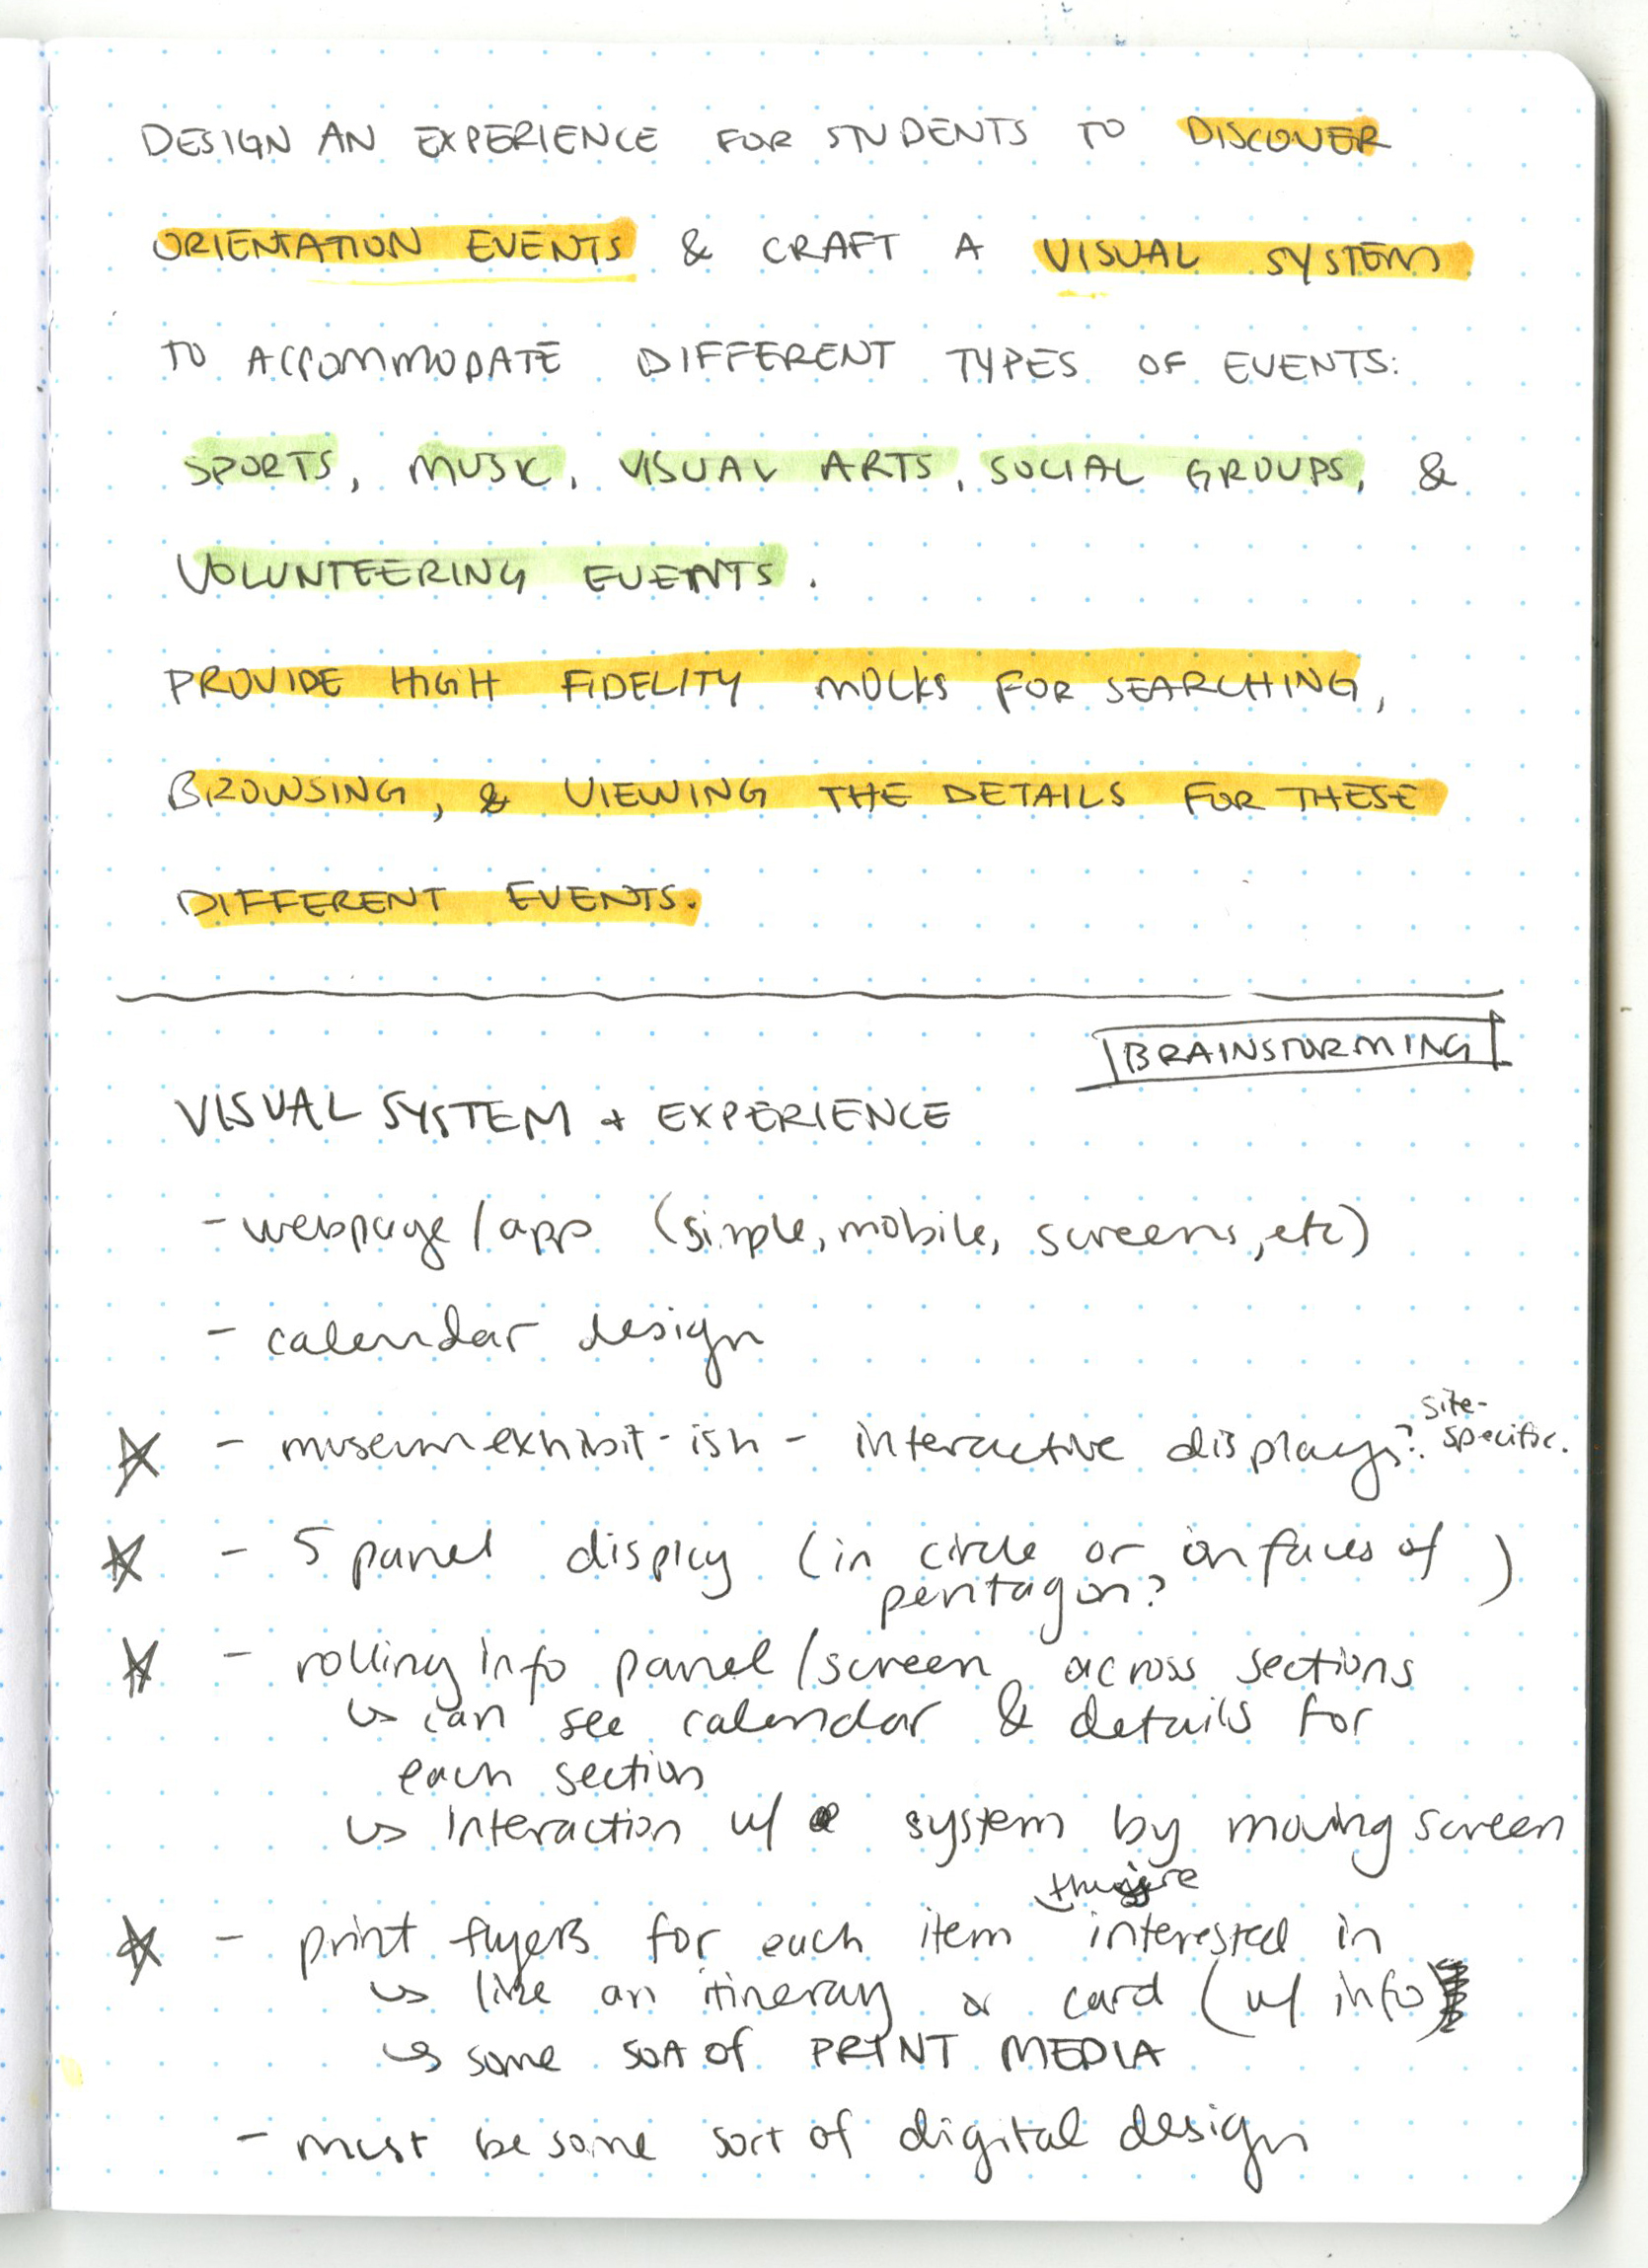 DESIGN AN EXPERIENCE FOR STUDENTS TO DISCOVER
ORIENTATION EVENTS & CRAFT A VISUAL SYSTEM
TO ACCOMMODATE DIFFERENT TYPES OF EVENTS:
SPORTS, MUSIC, VISUAL ARTS, SOCIAL GROUPS, &
VOLUNTEERING EVENTS.
PROVIDE HIGH FIDELITY MOCKS FOR SEARCHING,
BROWSING, & VIEWING THE DETAILS FOR THESE
DIFFERENT EVENTS.
BRAINSTORMING
VISUAL SYSTEM + EXPERIENCE
- webpage/app (simple, mobile, screens, etc)
- calendar design
- museum exhibit-ish - interactive displays? site-
specific.
- 5 panel display (in circle or on faces of )
pentagon?
- rolling info panel/screen across sections
↳ can see calendar & details for
each section
↳ interaction w/ system by moving screen
they're
- print flyers for each item interested in
↳ like an itinerary or card (w/ info)
↳ some sort of PRINT MEDIA
- must be some sort of digital design